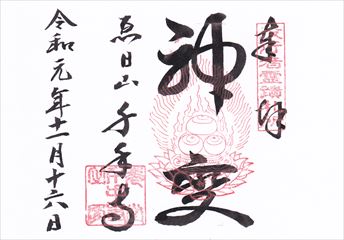 奉拝
神変
恵日山 千手寺
令和元年十一月十六日